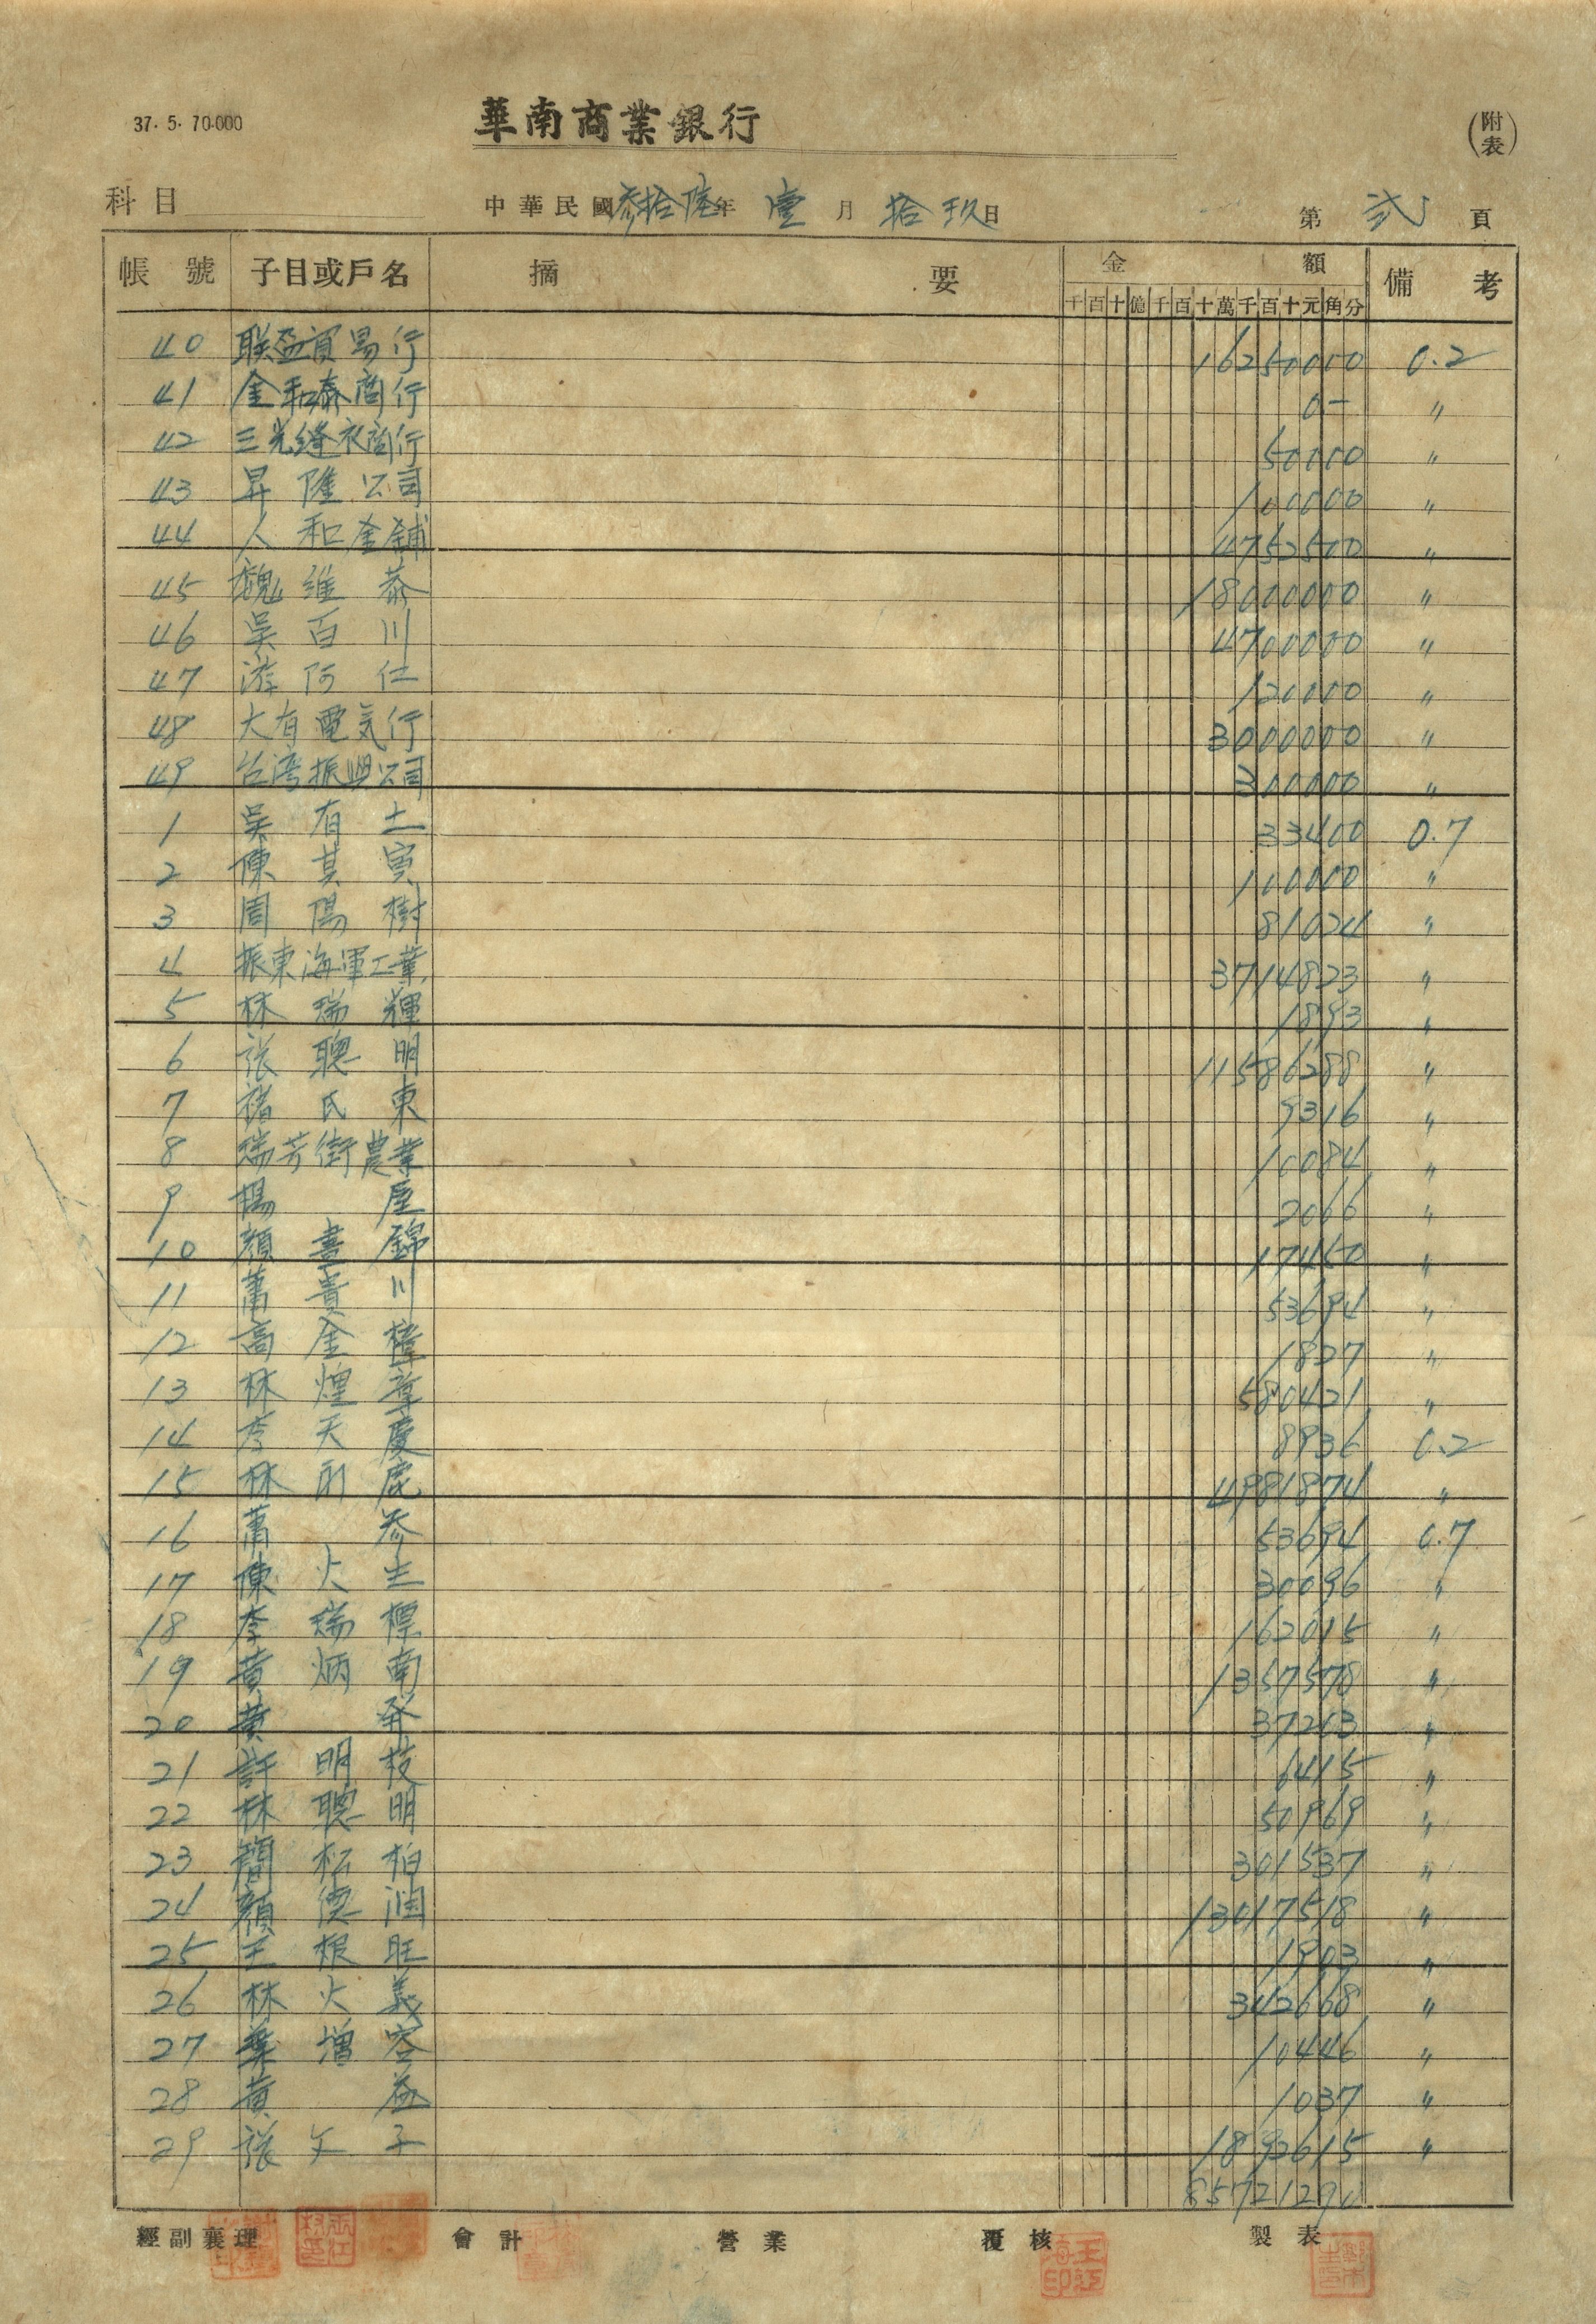 37. 5. 70.000
華南商業銀行
(附表)
科目
中華民國參拾陸年壹月拾玖日
第貳頁
帳號 子目或戶名 摘要 金額 備考
千百十億千百十萬千百十元角分
40 联盈貿易行 16250000 0.2
41 金和泰商行 0- 〃
42 三光縫衣商行 50000 〃
43 昇隆公司 100000 〃
44 人和金舖 4752500 〃
45 魏維恭 18000000 〃
46 吳百川 4700000 〃
47 游阿仁 120000 〃
48 大有電気行 3000000 〃
49 台湾振興公司 300000 〃
1 吳有土 33400 0.7
2 陳其寅 100000 〃
3 周陽樹 81024 〃
4 振東海軍工業 3714823 〃
5 林瑞輝 1893 〃
6 張聰明 11586288 〃
7 褚氏東 9316 〃
8 瑞芳街農業 10084 〃
9 楊 2066 〃
10 顏書錦 17450 〃
11 蕭貴川 53694 〃
12 高金樟 1827 〃
13 林煌章 580421 〃
14 李天慶 8936 0.2
15 林 4981874 〃
16 蕭参 53694 0.7
17 陳火生 30096 〃
18 李瑞標 162015 〃
19 黃炳南 1357578 〃
20 黃発 37213 〃
21 許明枝 6415 〃
22 林聰明 50969 〃
23 簡松柏 301537 〃
24 顏德潤 13017518 〃
25 王根旺 1903 〃
26 林火義 342668 〃
27 葉增容 10446 〃
28 黃益 1037 〃
29 張文子 1892615 〃
經副襄理 會計 營業 覆核 製表